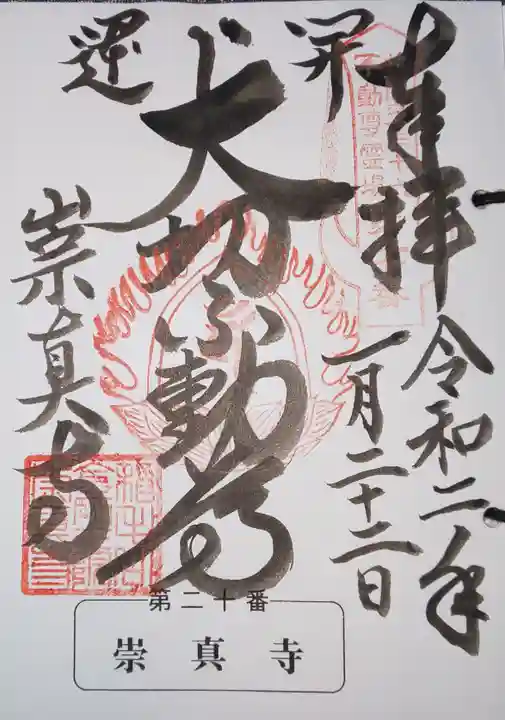 奉拝
令和二年
一月二十二日
開運
大切不動尊
崇真寺
第二十番
崇真寺